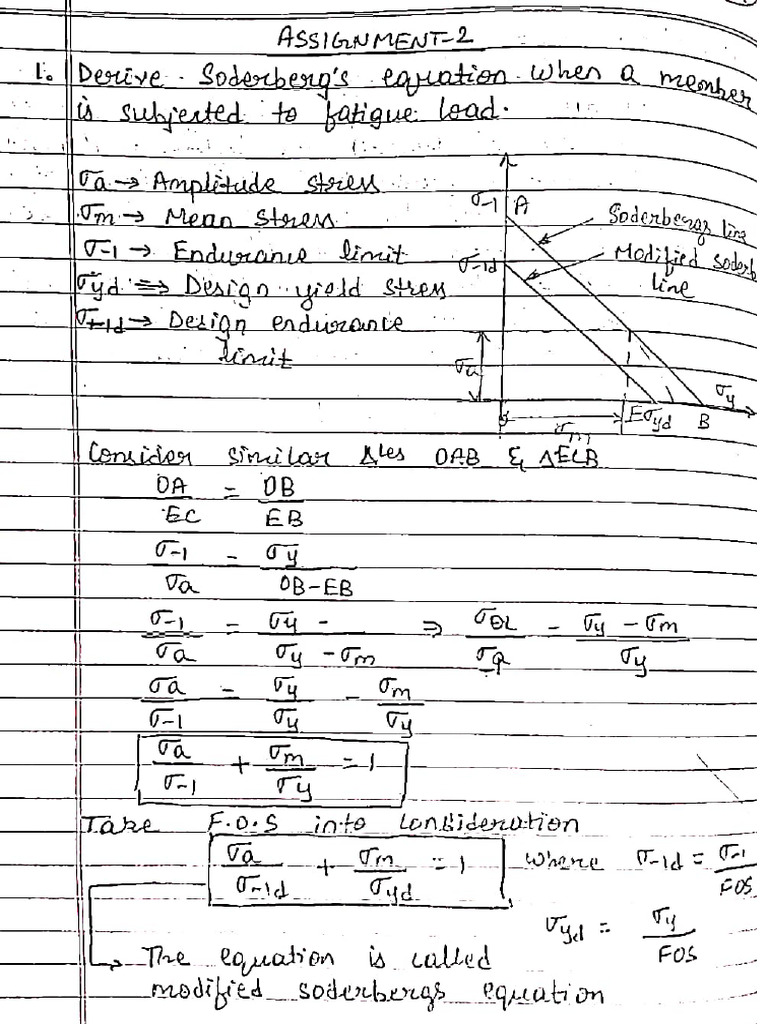 ASSIGNMENT-2
1. Derive Soderberg's equation when a member
is subjected to fatigue load.
σa → Amplitude stress
σm → Mean stress
σ-1 → Endurance limit
σyd ⇒ Design yield stress
σ-1d → Design endurance
limit
σ-1 A
Soderbergs line
σ-1d
Modified soderb
line
σa
σy
E σyd B
σm
Consider similar Δles OAB & ΔECB
OA/EC = OB/EB
σ-1/σa = σy/OB-EB
σ-1/σa = σy -/σy-σm ⇒ = σy-σm/σy
σa/σ-1 = σy/σy - σm/σy
σa/σ-1 + σm/σy = 1
Take F.O.S into consideration
σa/σ-1d + σm/σyd = 1 where σ-1d = σ-1/FOS
σyd = σy/FOS
The equation is called
modified soderbergs equation